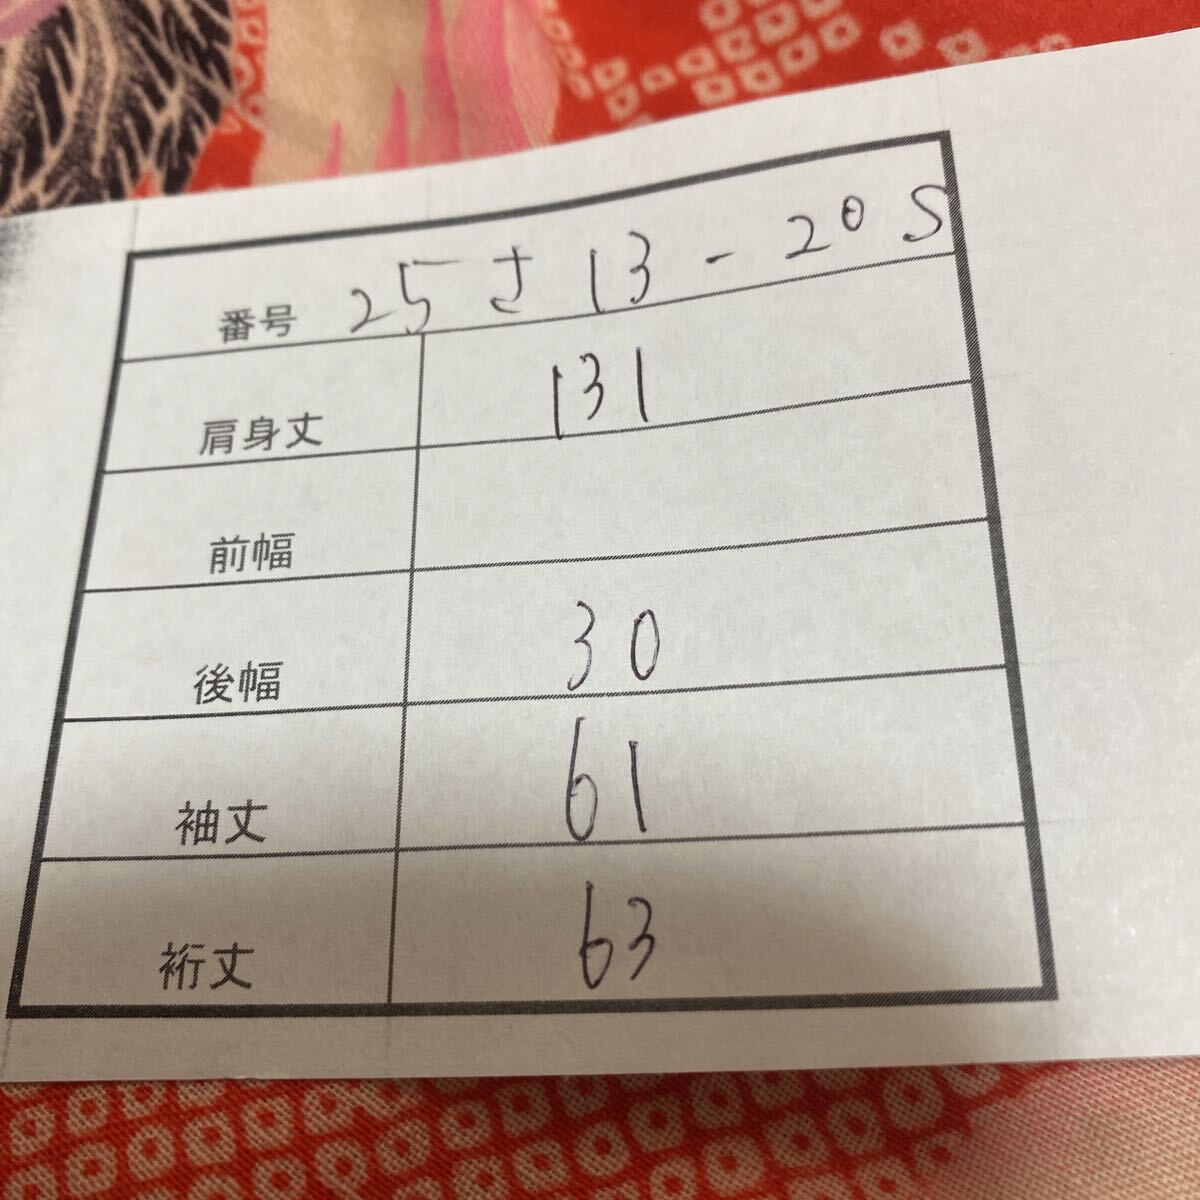 番号 25さ13-20S
肩身丈 131
前幅
後幅 30
袖丈 61
裄丈 63